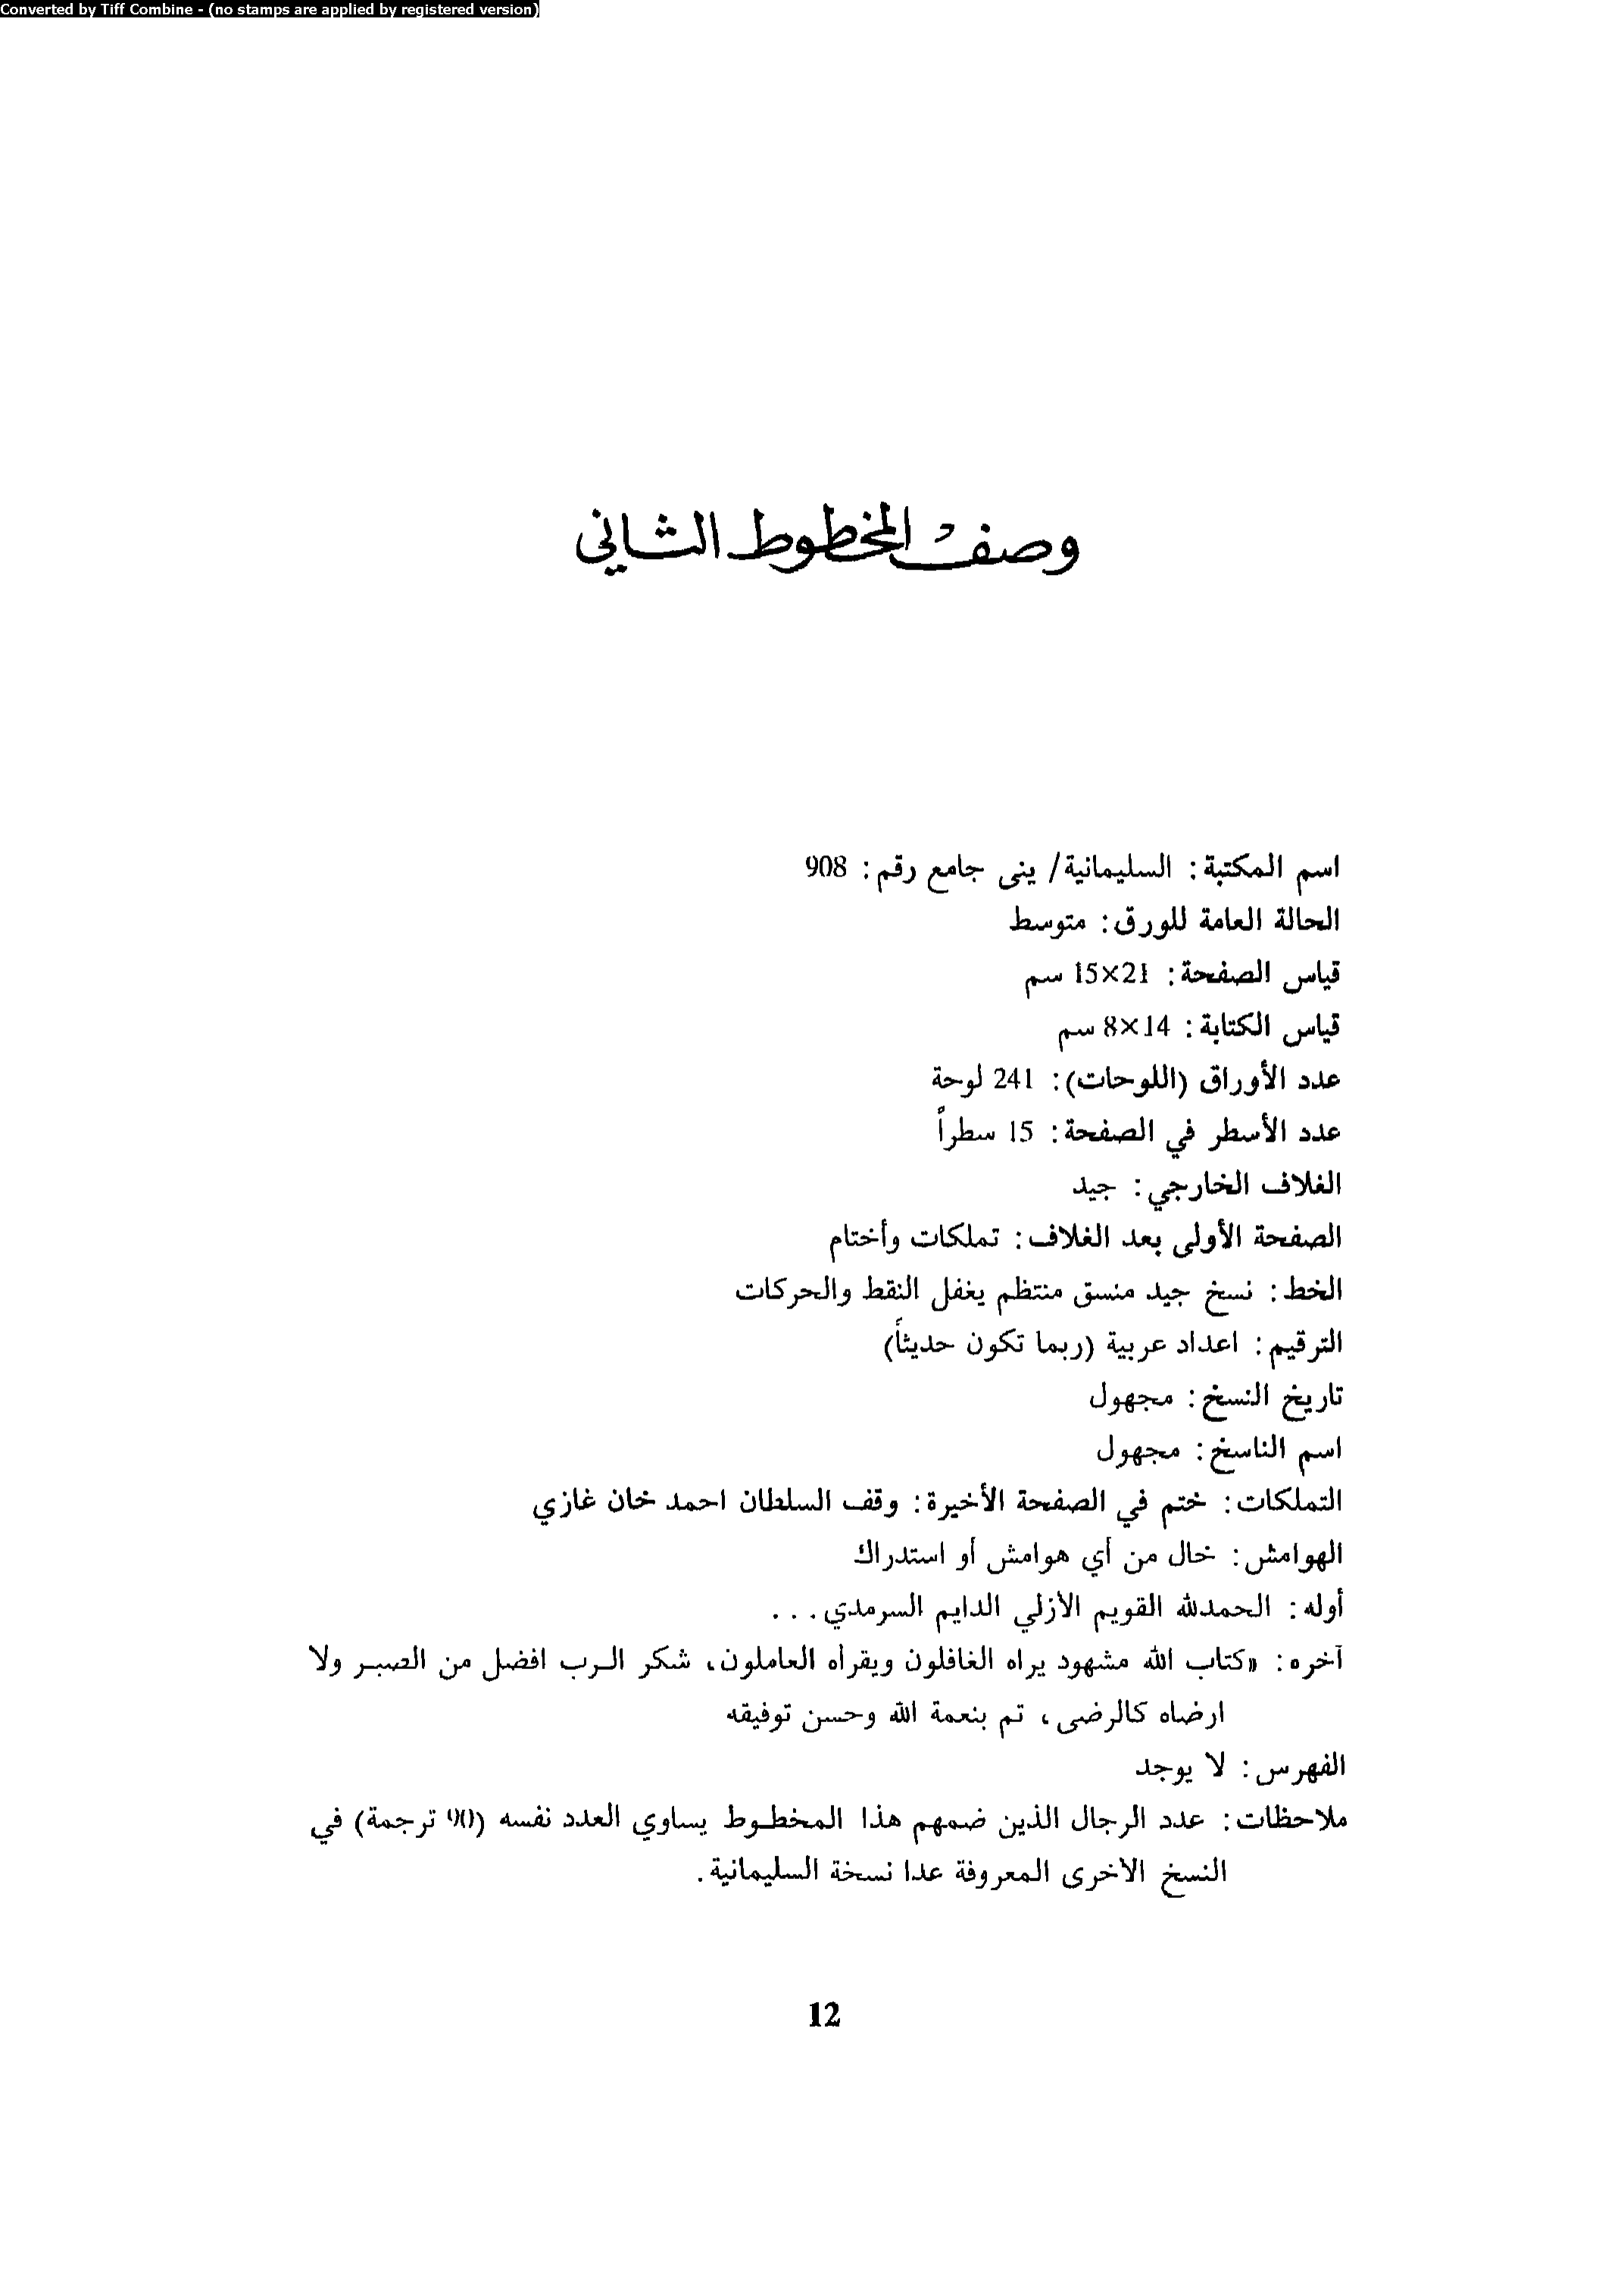 Converted by Tiff Combine - (no stamps are applied by registered version)
وصف المخطوط الثاني
اسم المكتبة: السليمانية/ ينى جامع رقم: 908
الحالة العامة للورق: متوسط
قياس الصفحة: 21×15 سم
قياس الكتابة: 14×8 سم
عدد الأوراق (اللوحات): 241 لوحة
عدد الأسطر في الصفحة: 15 سطراً
الغلاف الخارجي: جيد
الصفحة الأولى بعد الغلاف: تملكات وأختام
الخط: نسخ جيد منسق منتظم يغفل النقط والحركات
الترقيم: اعداد عربية (ربما تكون حديثاً)
تاريخ النسخ: مجهول
اسم الناسخ: مجهول
التملكات: ختم في الصفحة الأخيرة: وقف السلطان احمد خان غازي
الهوامش: خال من أي هوامش أو استدراك
أوله: الحمدلله القويم الأزلي الدايم السرمدي...
آخره: «كتاب الله مشهود يراه الغافلون ويقرأه العاملون، شكر الرب افضل من الصبر ولا
ارضاه كالرضى، تم بنعمة الله وحسن توفيقه
الفهرس: لا يوجد
ملاحظات: عدد الرجال الذين ضمهم هذا المخطوط يساوي العدد نفسه (90 ترجمة) في
النسخ الاخرى المعروفة عدا نسخة السليمانية.
12